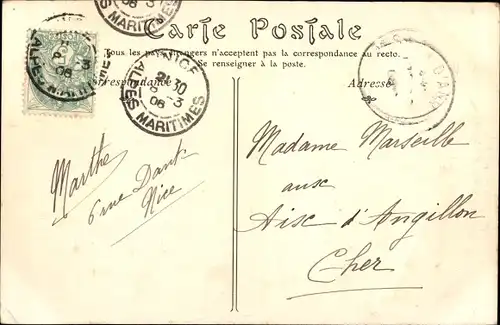 Carte Postale
Tous les pays étrangers n'acceptent pas la correspondance au recto.
Se renseigner à la poste.
Correspondance
Adresse
NICE
21 30
8-3
08
ALPES MARITIMES
Marthe
6 rue Dante
Nice
Madame Marseille
aux
Aix d'Angillon
Cher